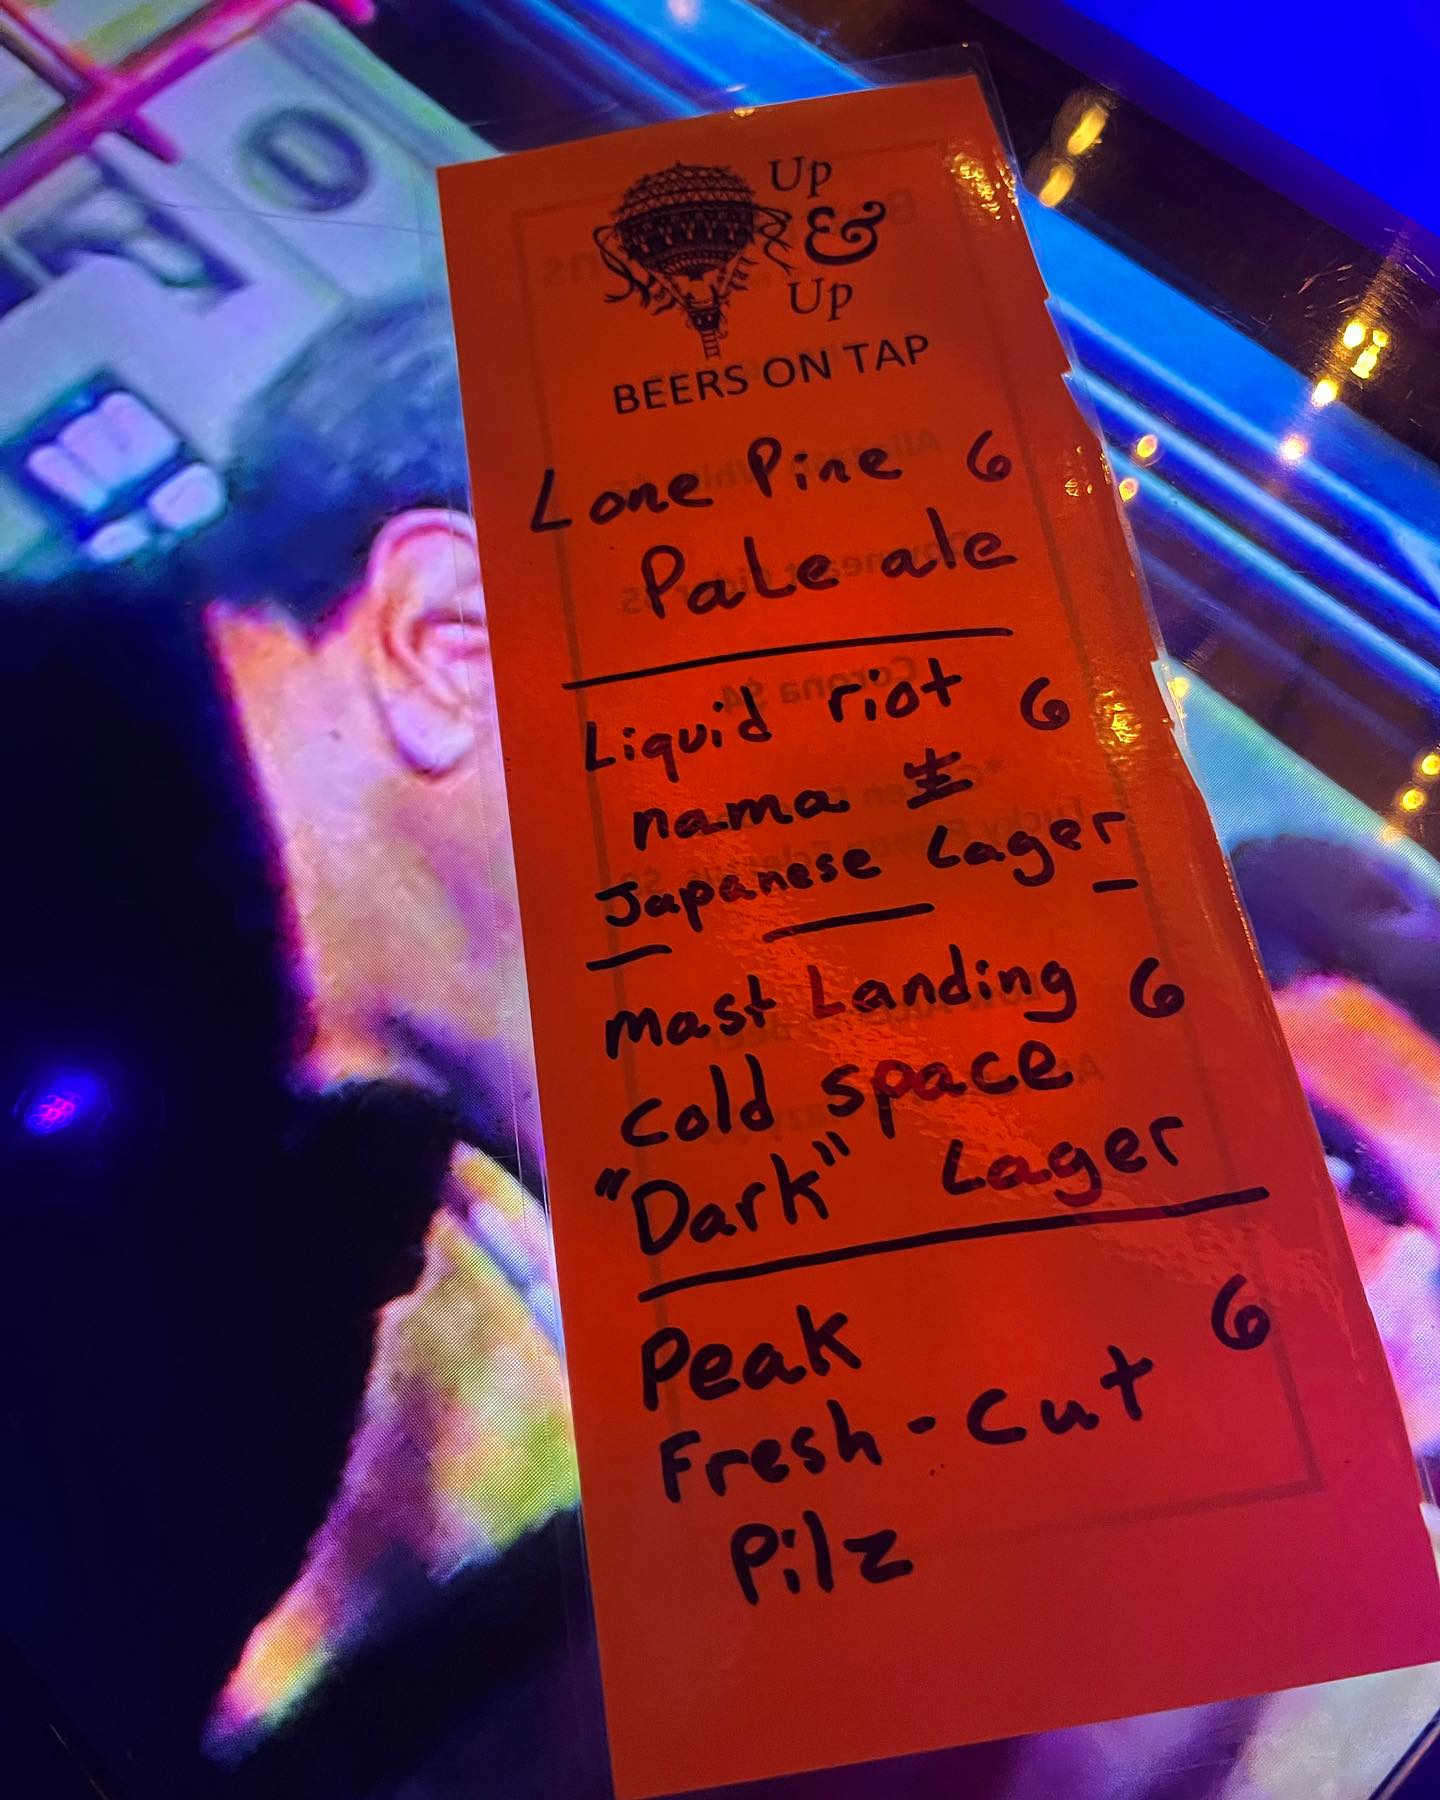 Up
&
Up
BEERS ON TAP
Lone Pine 6
Pale ale
Liquid riot 6
nama 生
Japanese Lager
Mast Landing 6
Cold space
"Dark" Lager
Peak 6
Fresh-Cut
Pilz
Corona $4